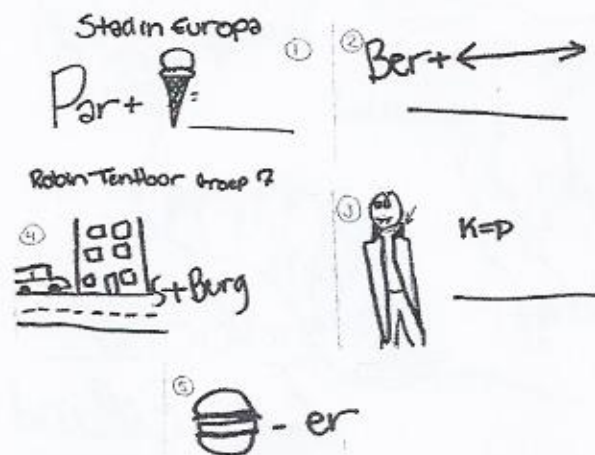 Stad in Europa
① Par + =
② Ber+
Robin Tenhoor Groep 7
③ K=P
④ s+Burg
⑤ - er